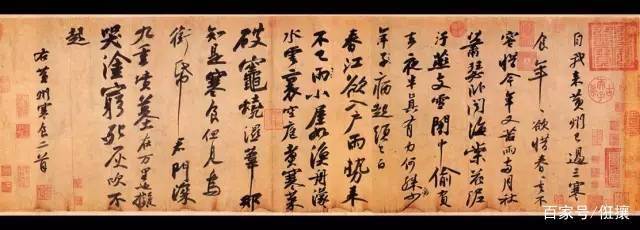 自我來黃州已過三寒
食年〻欲惜春〻去不
容惜今年又苦雨兩月秋
蕭瑟卧聞海棠花泥
汙燕支雪闇中偷負
去夜半真有力何殊少
年子病起須已白
春江欲入戶雨勢來
不已雨小屋如漁舟濛〻
水雲裏空庖煮寒菜
破竈燒濕葦那
知是寒食但見烏
銜帋君門深
九重墳墓在万里也擬
哭塗窮死灰吹不
起
右黃州寒食二首
百家号/伝攘